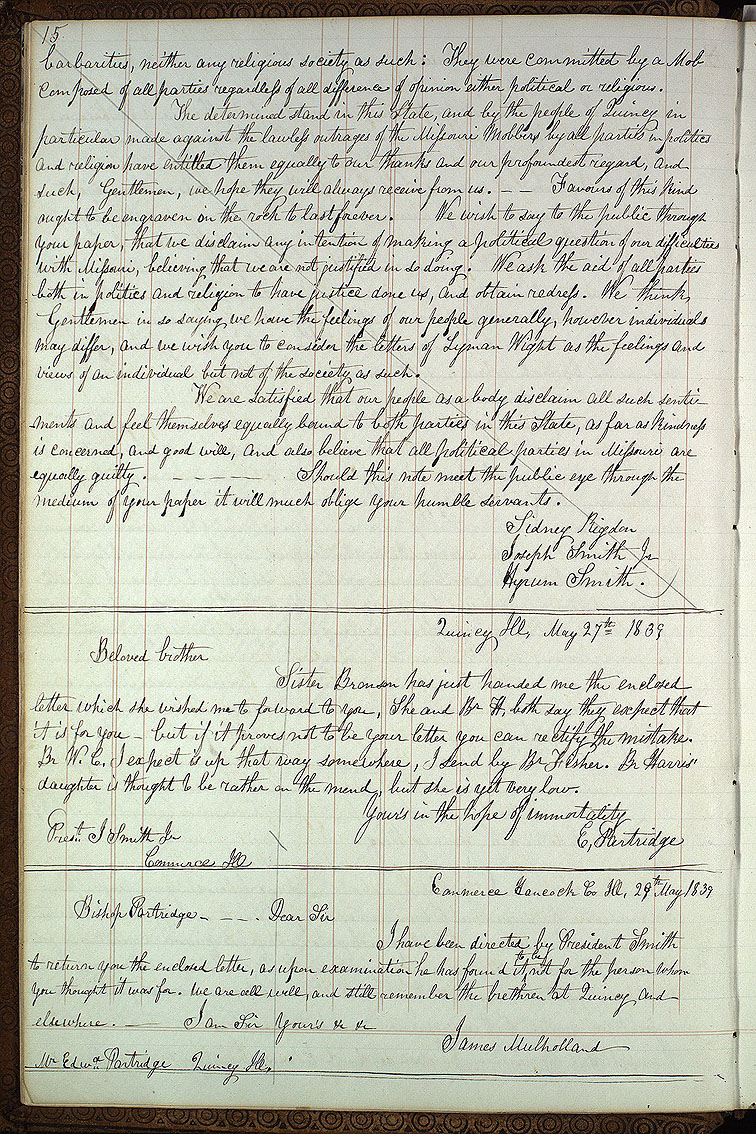 15.
barbarities, neither any religious society as such: They were committed by a Mob
composed of all parties regardless of all difference of opinion either political or religious.
The determined stand in this State, and by the people of Quincy in
particular made against the lawless outrages of the Missouri Mobbers by all parties in politics
and religion have entitled them equally to our thanks and our profoundest regard, and
such, Gentlemen, we hope they will always receive from us. — — Favours of this kind
ought to be engraven on the rock to last forever. We wish to say to the public through
your paper, that we disclaim any intention of making a political question of our difficulties
with Missouri, believing that we are not justified in so doing. We ask the aid of all parties
both in politics and religion to have justice done us, and obtain redress. We think,
Gentlemen in so saying, we have the feelings of our people generally, however individuals
may differ, and we wish you to consider the letters of Lyman Wight as the feelings and
views of an individual but not of the society as such.
We are satisfied that our people as a body disclaim all such senti-
ments and feel themselves equally bound to both parties in this State, as far as kindness
is concerned, and good will, and also believe that all political parties in Missouri are
equally guilty. — — — — — Should this note meet the public eye through the
medium of your paper it will much oblige your humble servants.
Sidney Rigdon
Joseph Smith Jr
Hyrum Smith.
Quincy Ill, May 27th 1839
Beloved brother
Sister Bronson has just handed me the enclosed
letter which she wished me to forward to you, She and Br H, both say they expect that
it is for you — but if it proves not to be your letter you can rectify the mistake.
Br W. C. I expect is up that way somewhere, I send by Br Fisher. Br Harris'
daughter is thought to be rather on the mend, but she is yet very low.
Yours in the hope of immortality
E, Partridge
Prest. J Smith Jr
Commerce Ill
Commerce Hancock Co Ill, 29th May 1839
Bishop Partridge — — — . Dear Sir
I have been directed by President Smith
to return you the enclosed letter, as upon examination he has found it, to be not for the person whom
you thought it was for. We are all well, and still remember the brethren at Quincy and
elsewhere. — I am Sir Yours &c &c
James Mulholland
Mr Edwd. Partridge Quincy Ill.